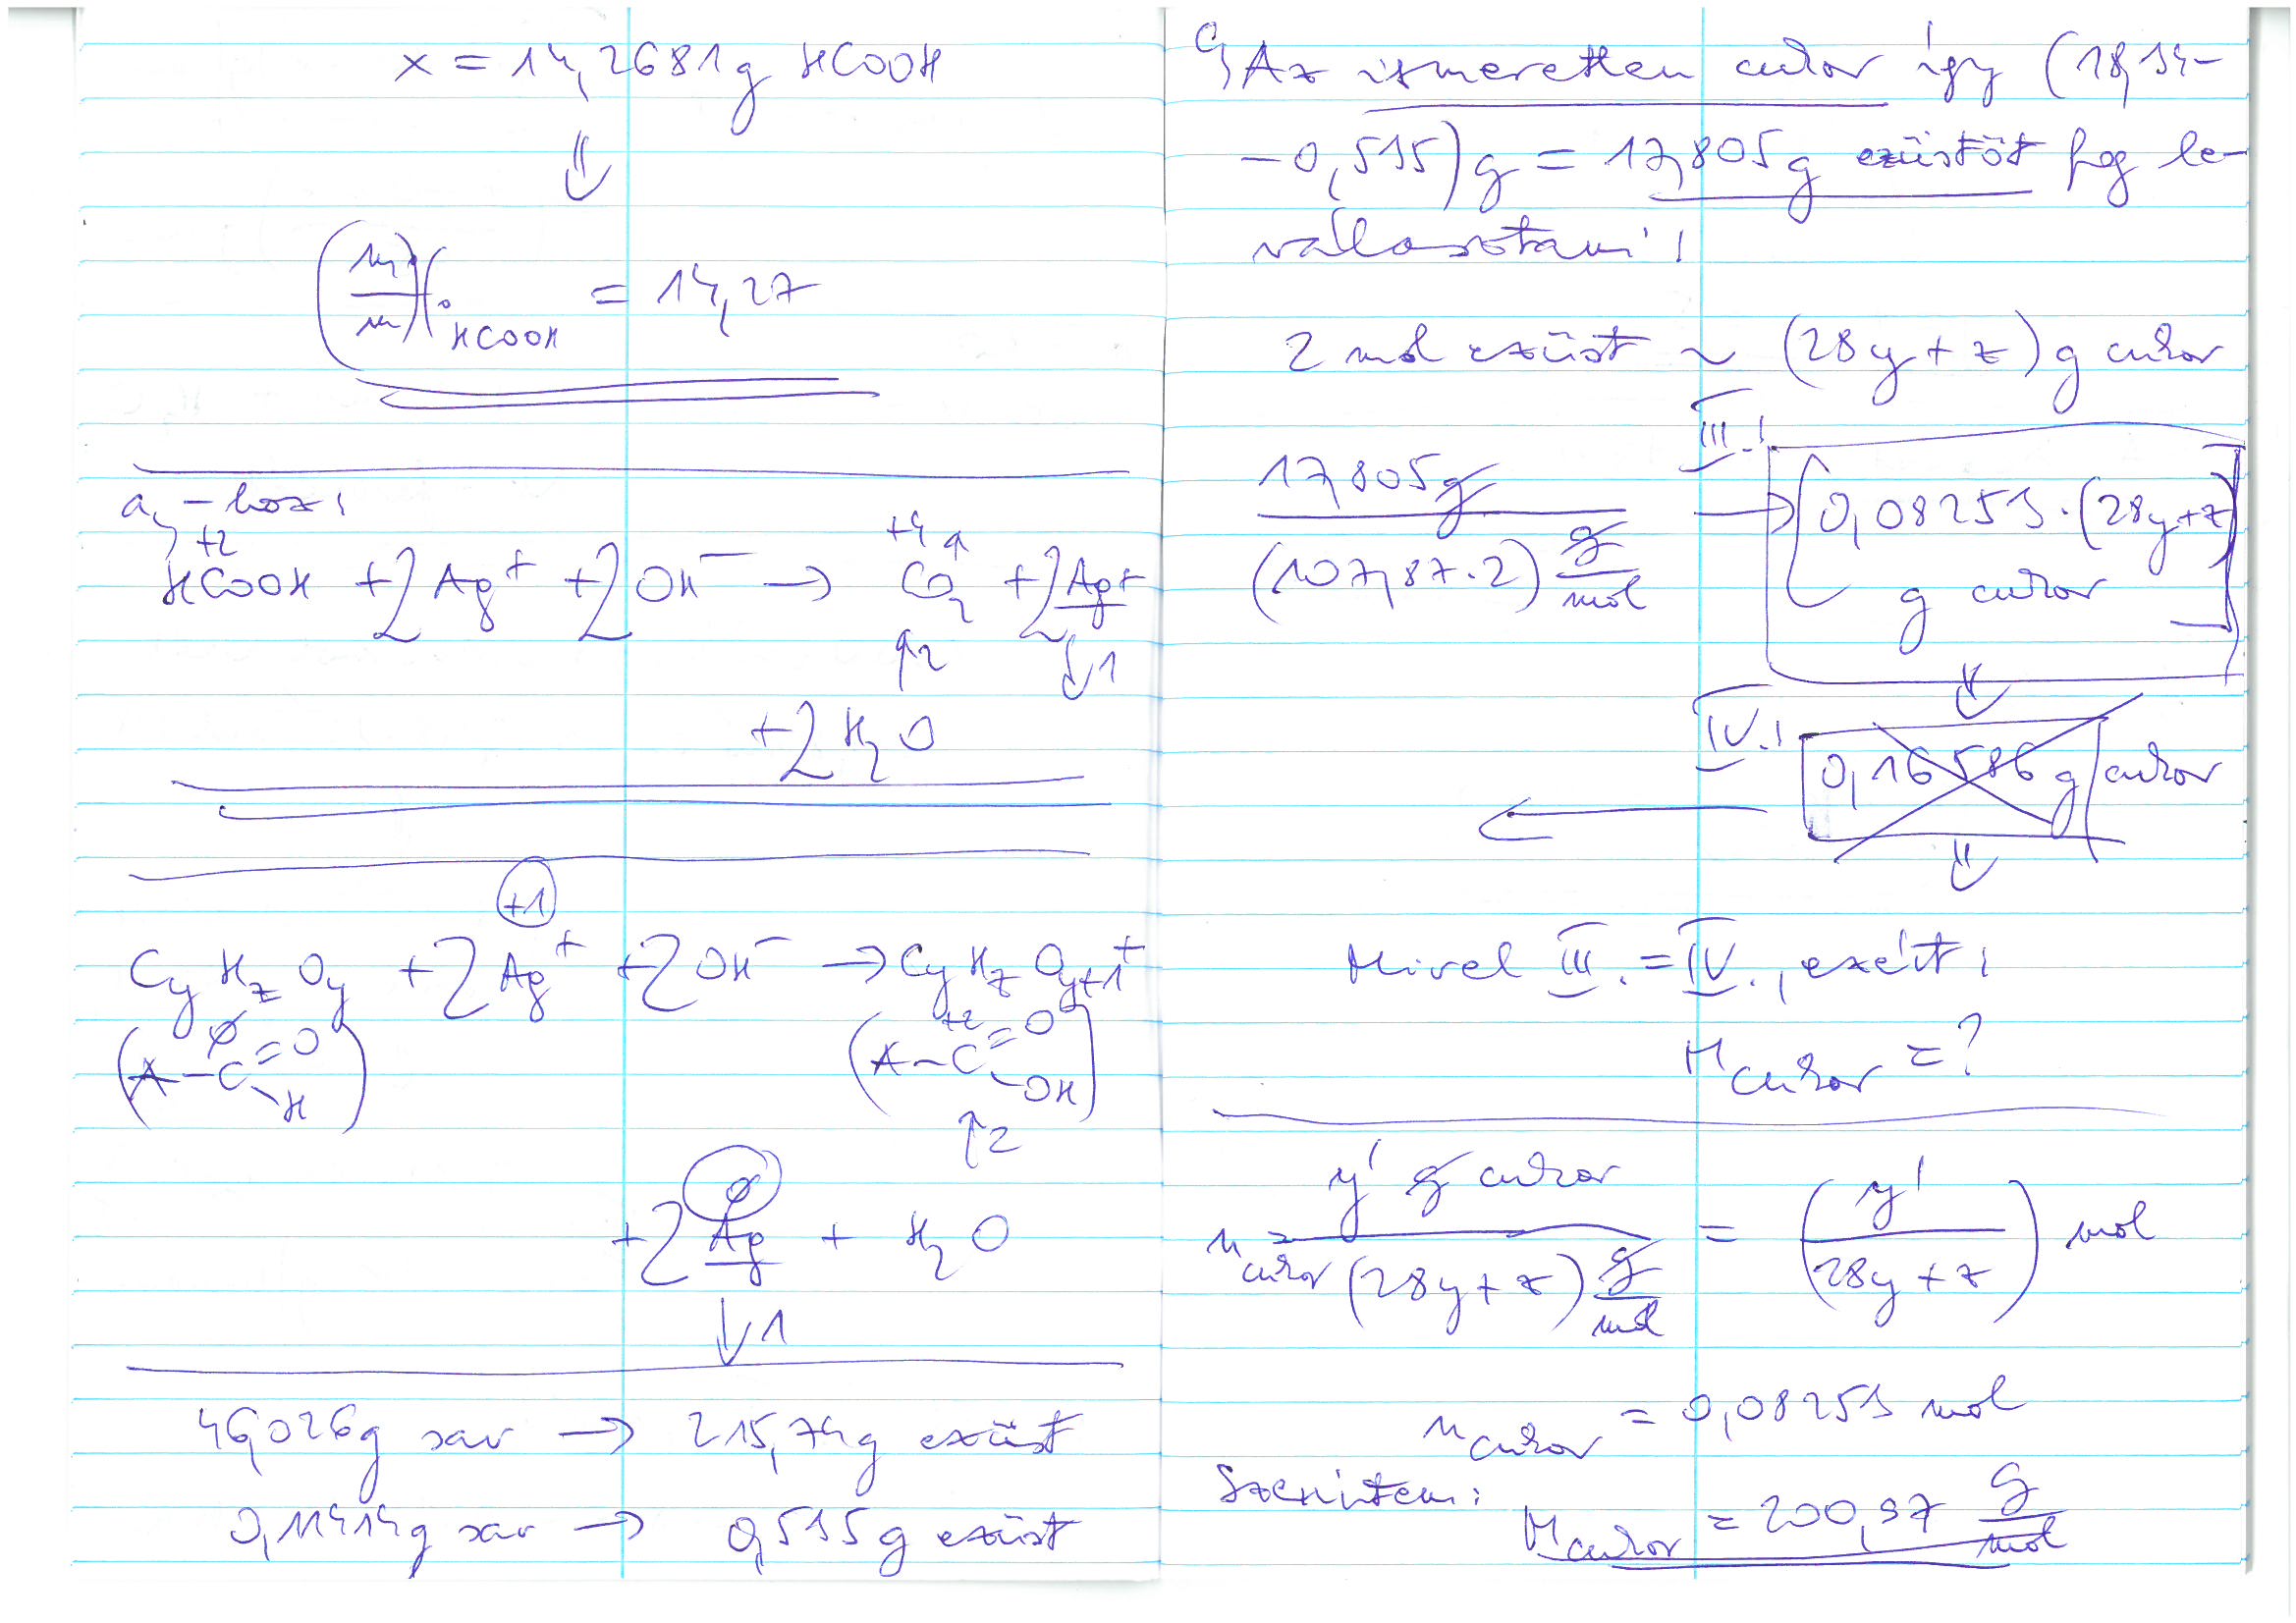 x = 14,2681g HCOOH
⇓
(m/m)%HCOOH = 14,27
a, -hoz:
+2 +4
HCOOH + 2Ag⁺ + 2OH⁻ → CO₂ + 2Ag +
↑2 ↓1
+ 2H₂O
+1
CyHzOy + 2Ag⁺ + 2OH⁻ → CyHzOy+1 +
(A-C=O H) (A-C=O OH)
↑2
+ 2Ag + H₂O
↓1
46,026g sav → 215,74g ezüst
0,11414g sav → 0,535g ezüst
c, Az ismeretlen cukor így (18,34-
-0,535)g = 17,805g ezüstöt fog le-
választani!
2 mol ezüst ~ (28y+z)g cukor
III.!
17,805g / (107,87·2) g/mol → [0,08253·(28y+z)
g cukor]
⇓
IV.!
0,16586g cukor
←
⇓
Mivel III. = IV., ezért:
Mcukor = ?
ncukor = y' g cukor / (28y+z) g/mol = (y' / 28y+z) mol
ncukor = 0,08253 mol
Szerintem:
Mcukor = 200,97 g/mol